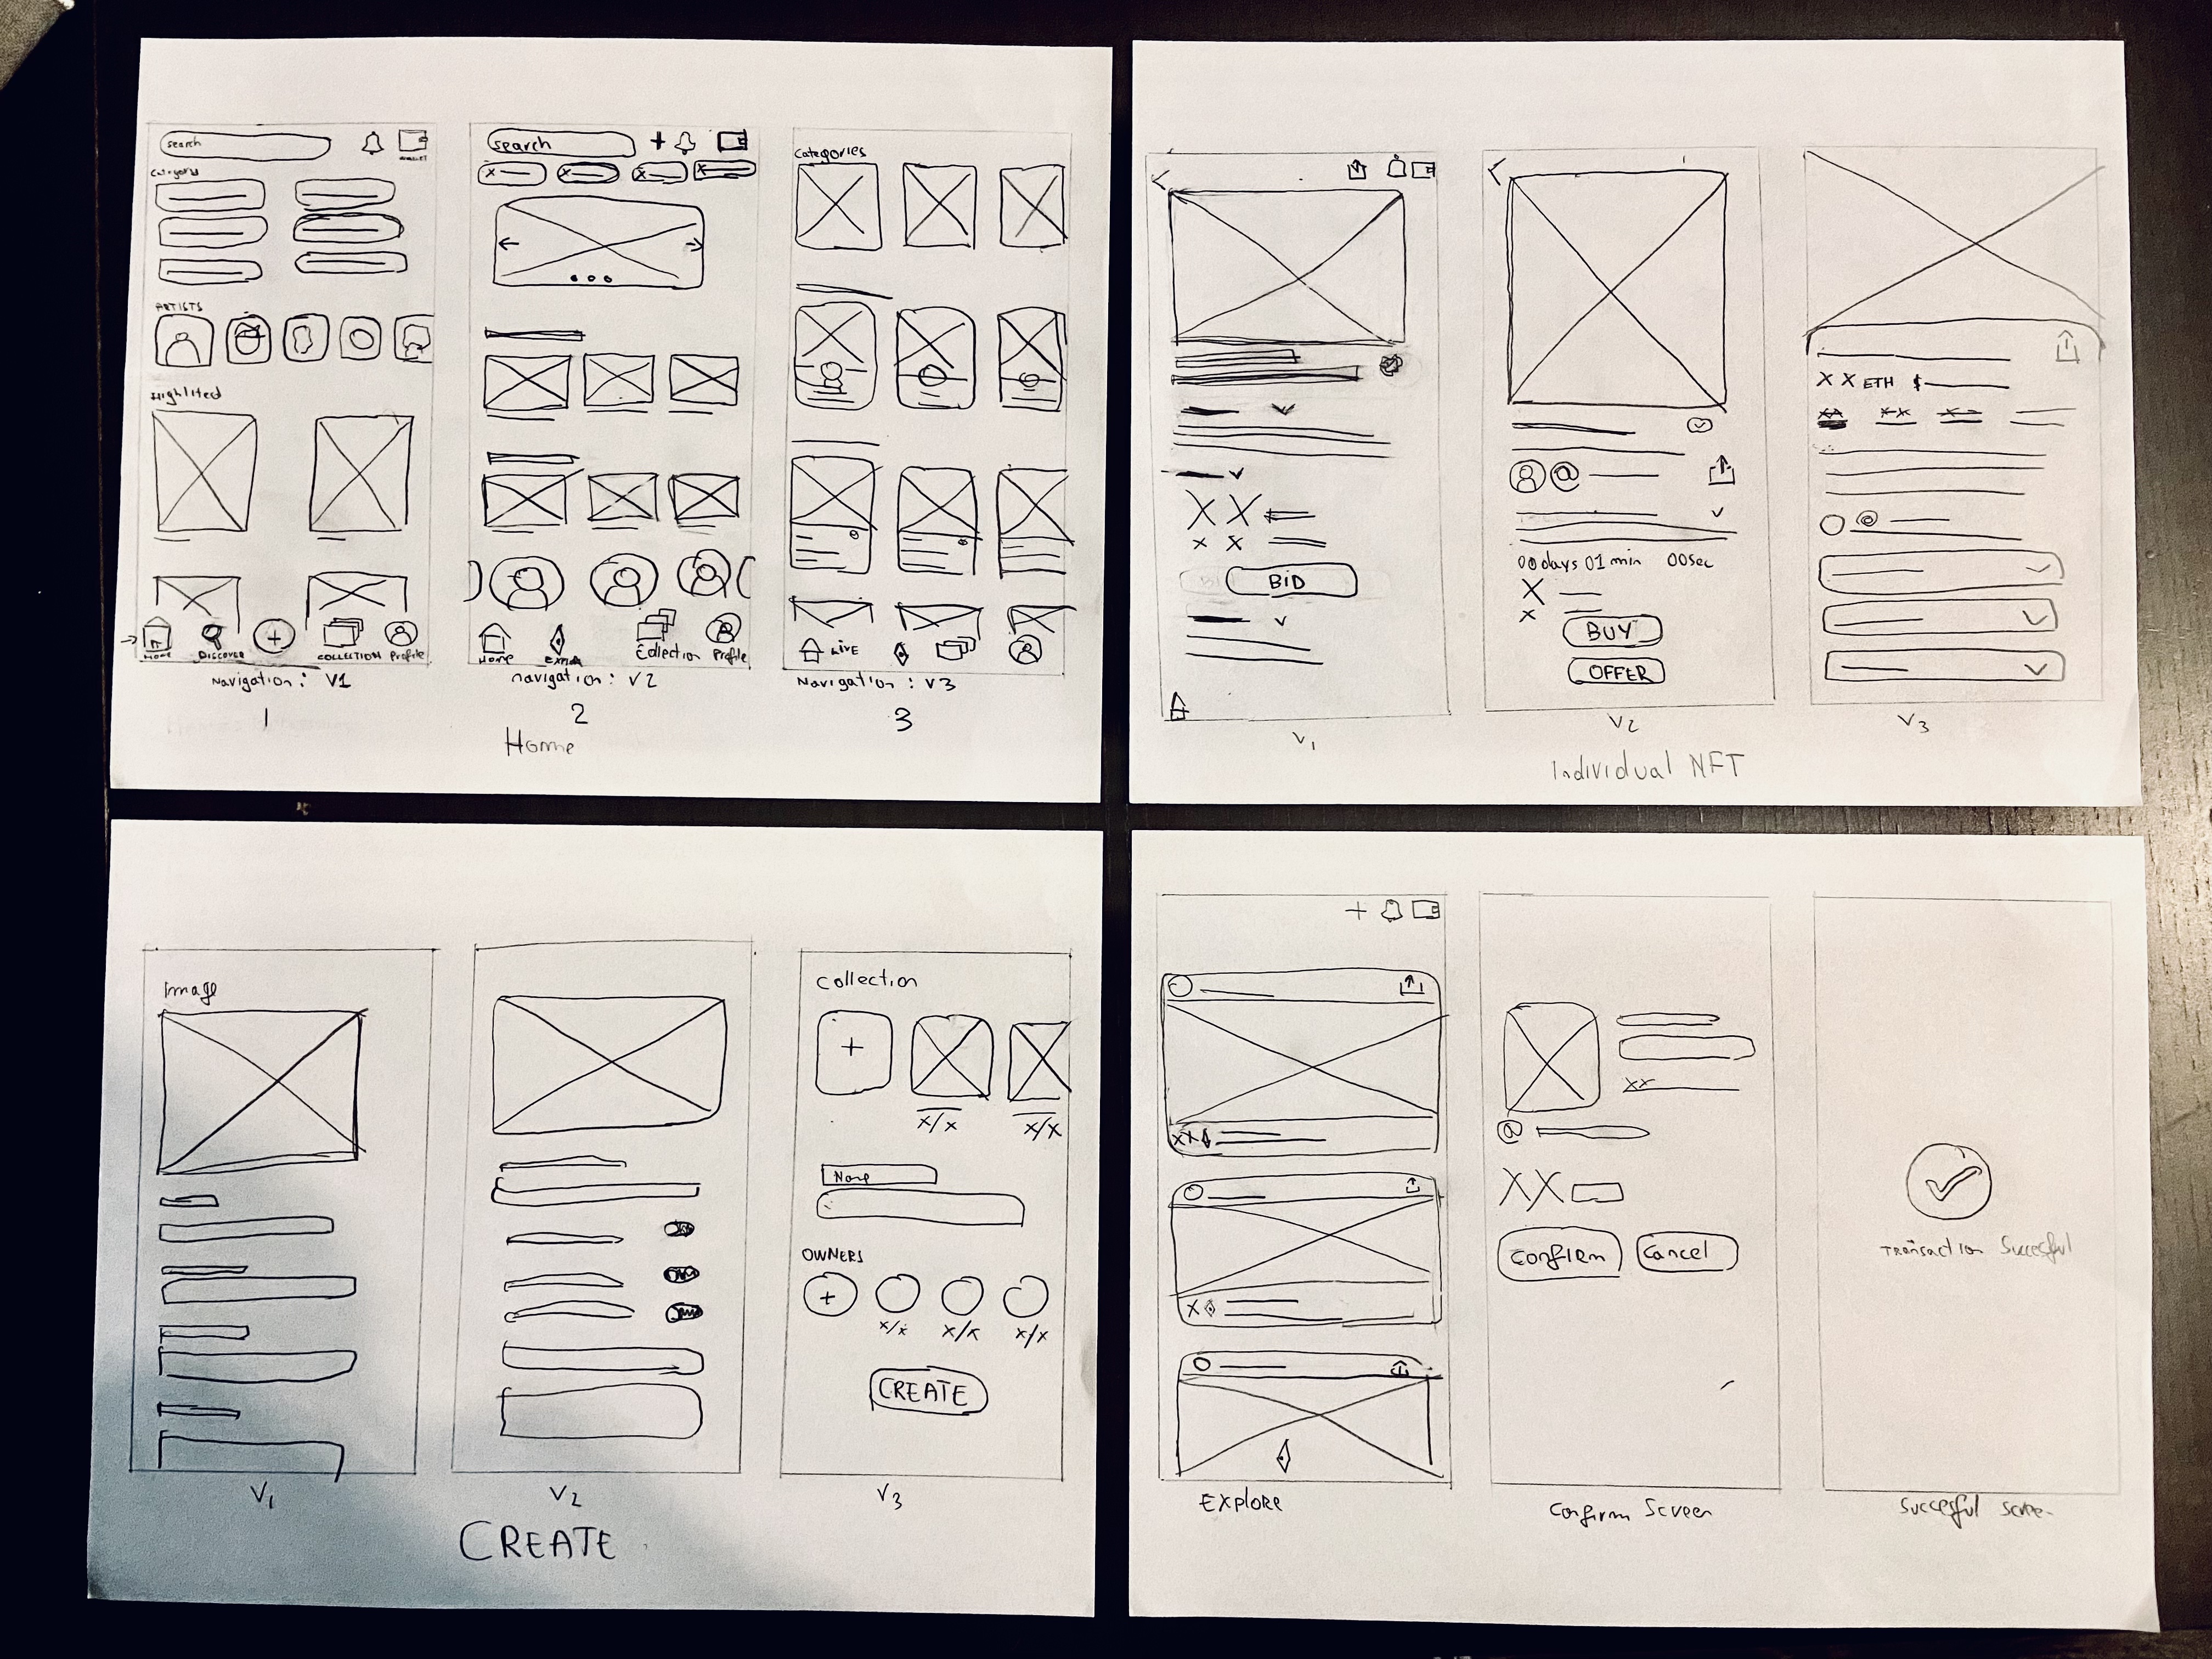 search
WALLET
ARTISTS
Highlited
HOME
DISCOVER
COLLECTION
Profile
Navigation: V1
1
search
Home
Collection
Profile
navigation: V2
2
Categories
LIVE
Navigation: V3
3
Home
BID
V1
00days 01min 00sec
BUY
OFFER
V2
XX ETH $
V3
Individual NFT
Image
V1
V2
Collection
x/x
x/x
OWNERS
x/x
x/x
x/x
CREATE
V3
CREATE
XX
X
EXPLORE
xx
@
XX
Confirm
Cancel
Confirm Screen
Transaction Succesful
Succesful Screen